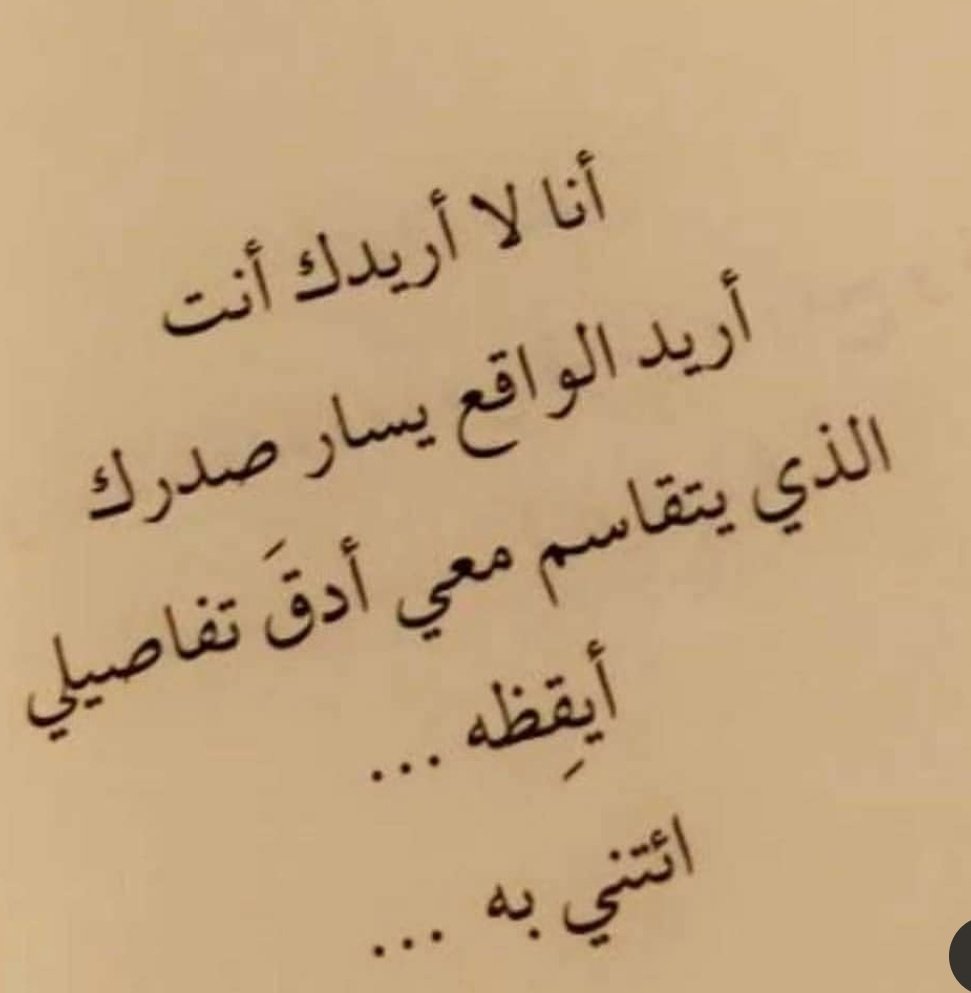 أنا لا أريدك أنت
أريد الواقع يسار صدرك
الذي يتقاسم معي أدقَ تفاصيلي
أيقِظه ...
ائتني به ...